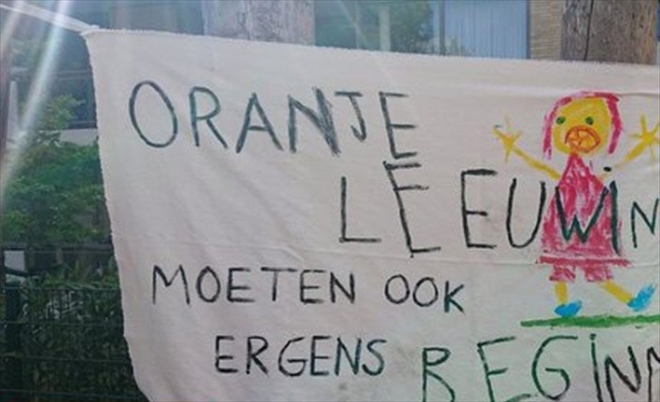 ORANJE
LEEUWIN
MOETEN OOK
ERGENS BEGINN